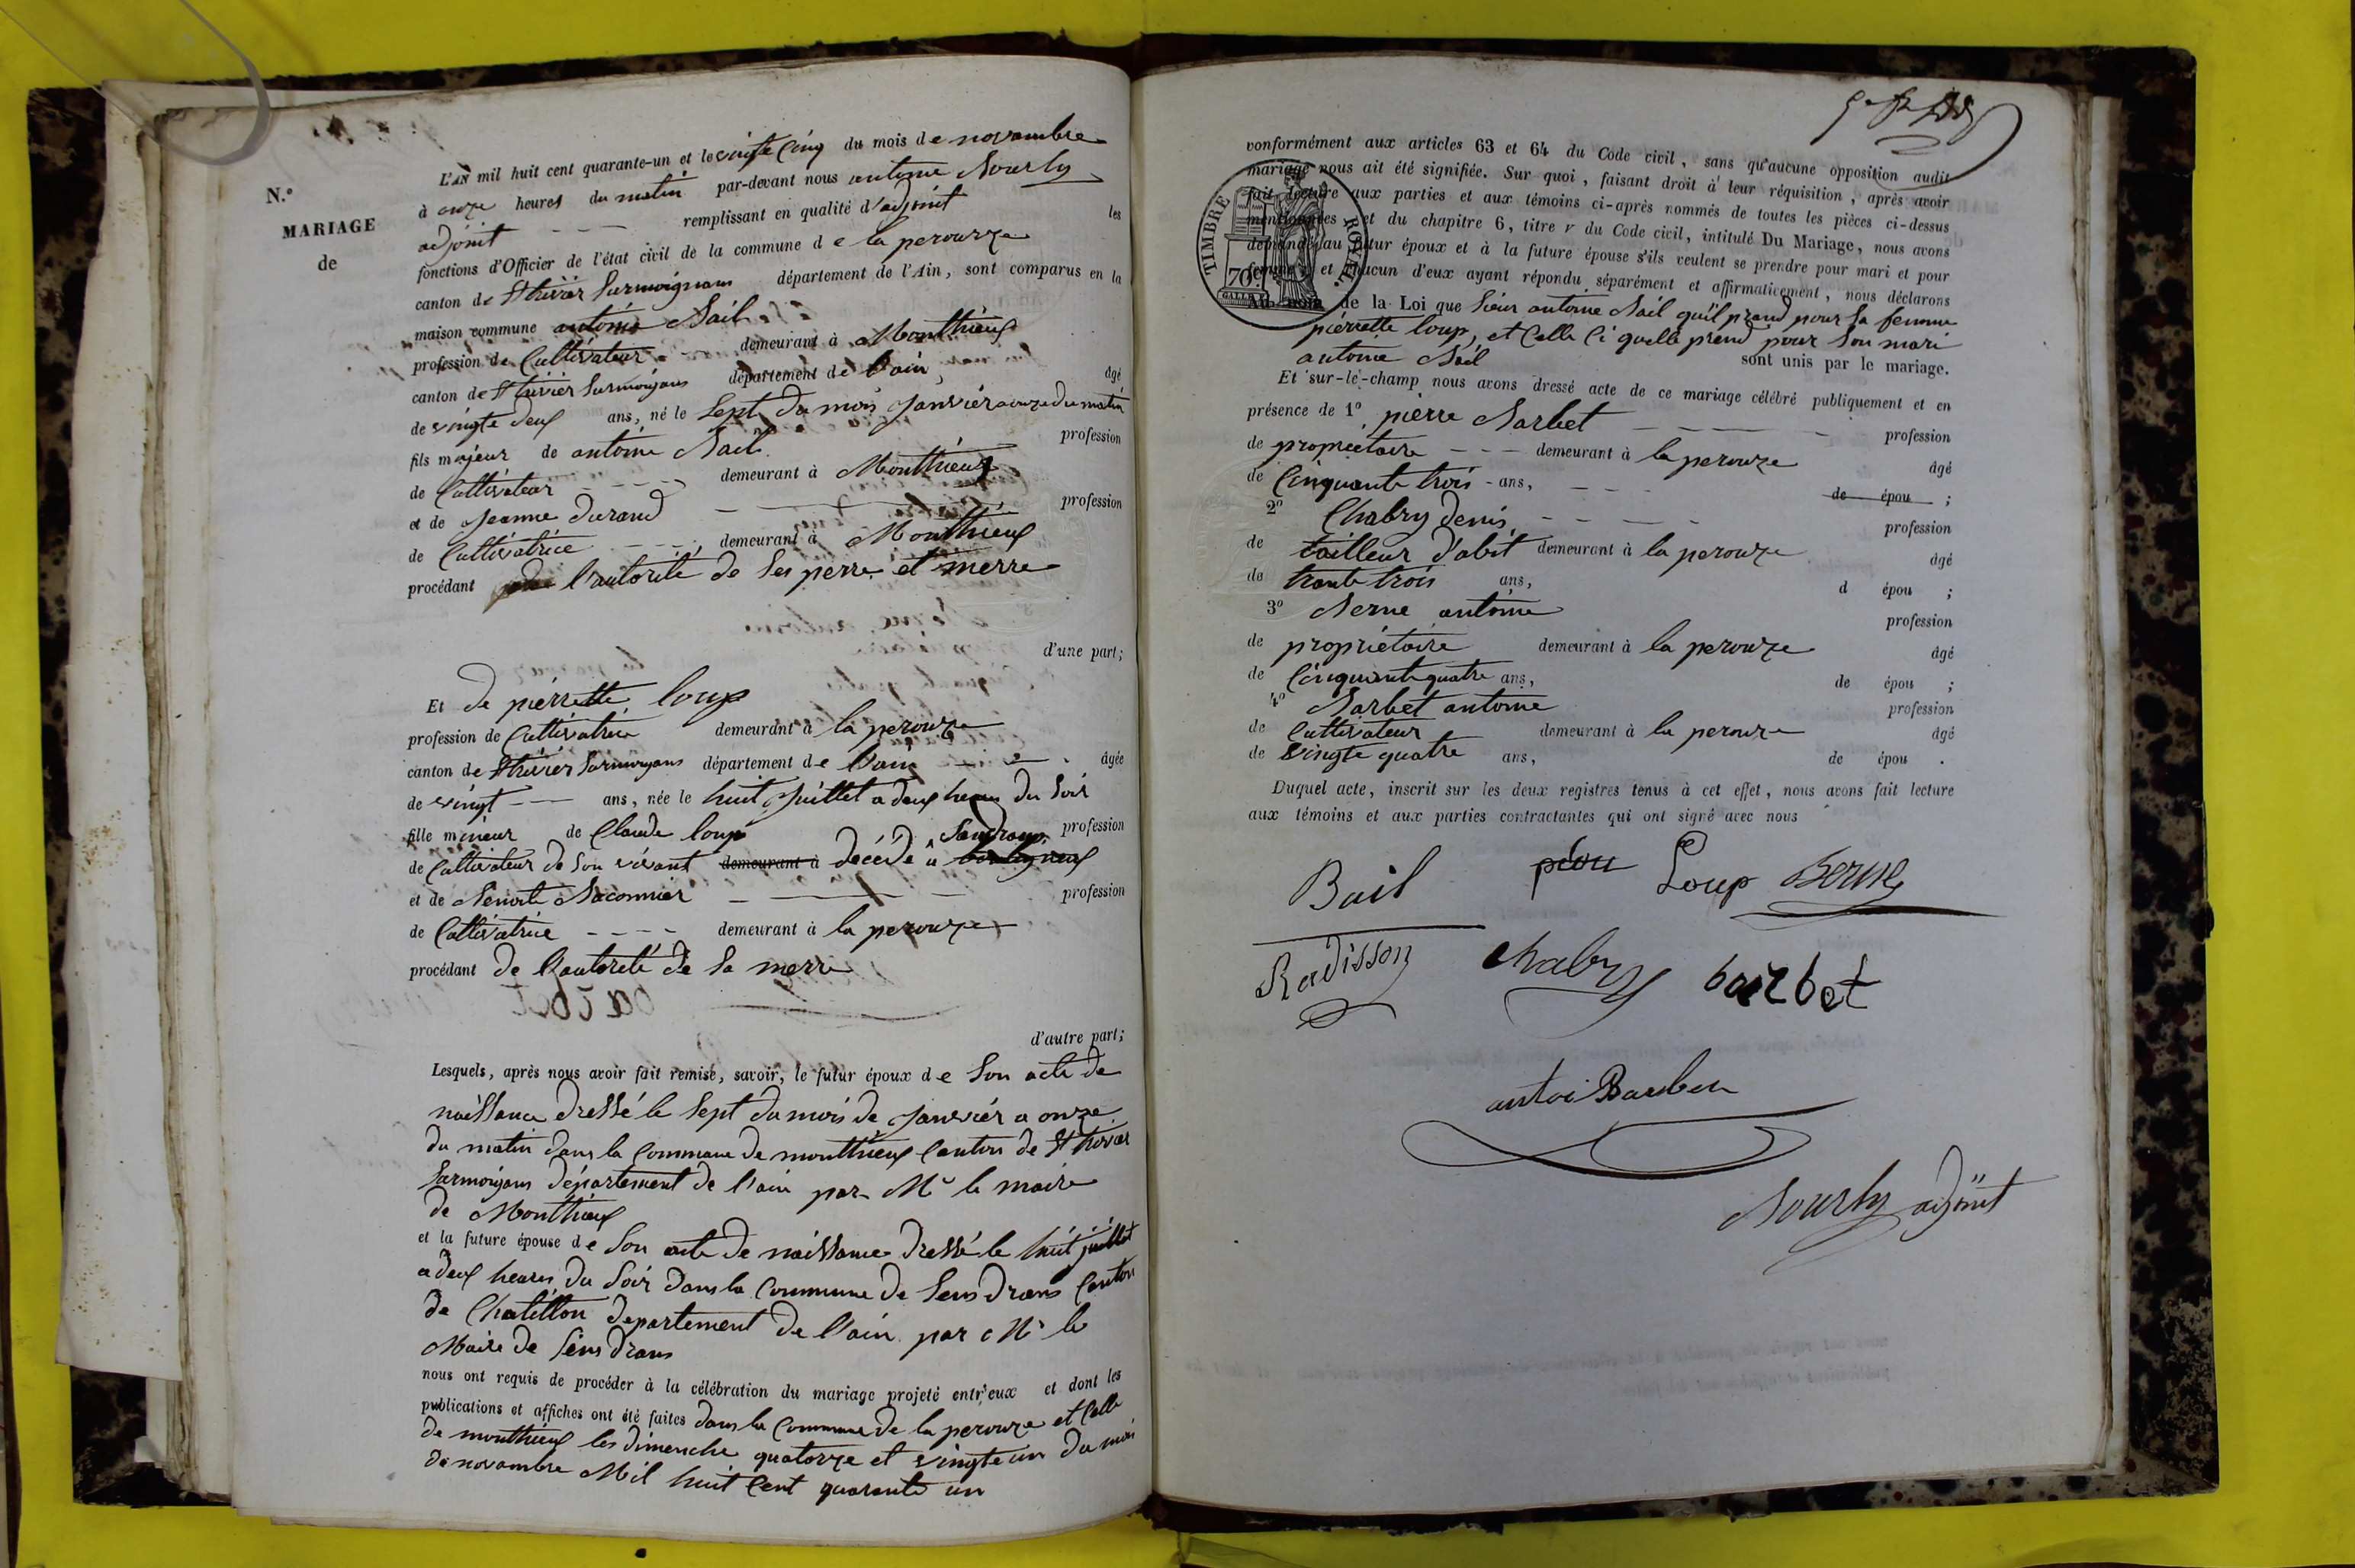 N.°
MARIAGE
de
L'AN mil huit cent quarante-un et le vingte cinq du mois de novambre
à onze heures du matin par-devant nous antoine Bourly
adjoint remplissant en qualité d'adjoint les
fonctions d'Officier de l'état civil de la commune de la perouze
canton de St trivier surmoignans département de l'Ain, sont comparus en la
maison commune antoine Bail
profession de Cultivateur demeurant à Monthieux
canton de St trivier surmoignans département de l'ain âgé
de vingte deux ans, né le sept du mois janvier a onze du matin
fils majeur de antoine Bail profession
de Cultivateur demeurant à Monthieux
et de Jeanne durand profession
de Cultivatrice demeurant à Monthieux
procédant de l'autorité de ses perre et merre
d'une part;
Et de pierrette loup
profession de Cultivatrice demeurant à la perouze
canton de St trivier surmoignans département de l'ain âgée
de vingt ans, née le huit juillet a deux heures du soir
fille mineur de Claude loup profession
de Cultivateur de son vivant demeurant à décédé à Sandrans
et de Benoite Maconnier profession
de Cultivatrice demeurant à la perouze
procédant de l'autorité de sa merre
d'autre part;
Lesquels, après nous avoir fait remise, savoir, le futur époux de son acte de
naissance dressé le sept du mois de janvier a onze
du matin dans la Commune de monthieux Canton de St trivier
surmoignans département de l'ain par Mr le maire
de Monthieux
et la future épouse de son acte de naissance dressé le huit juillet
a deux heures du soir dans la Commune de sensdrans Canton
de Chatillon departement de l'ain par Mr le
Maire de sensdrans
nous ont requis de procéder à la célébration du mariage projeté entr'eux et dont les
publications et affiches ont été faites dans la Commune de la perouze et Celle
de monthieux les dimenche quatorze et vingte un du mois
de novambre Mil huit Cent quarante un
conformément aux articles 63 et 64 du Code civil, sans qu'aucune opposition audit
mariage nous ait été signifiée. Sur quoi, faisant droit à leur réquisition, après avoir
fait lecture aux parties et aux témoins ci-après nommés de toutes les pièces ci-dessus
mentionnées et du chapitre 6, titre v du Code civil, intitulé Du Mariage, nous avons
demandé au futur époux et à la future épouse s'ils veulent se prendre pour mari et pour
femme; et chacun d'eux ayant répondu séparément et affirmativement, nous déclarons
Au nom de la Loi que sieur antoine Bail qu'il prand pour sa femme
pierrette loup, et Celle Ci quelle prend pour son mari
antoine Bail sont unis par le mariage.
TIMBRE ROYAL.
70 c
Et sur-le-champ nous avons dressé acte de ce mariage célébré publiquement et en
présence de 1° pierre Barbet profession
de propriétaire demeurant à la perouze âgé
de Cinquante trois ans, de épou ;
2° Chabry denis profession
de tailleur d'abit demeurant à la perouze âgé
de trante trois ans, d épou ;
3° Berne antoine profession
de propriétaire demeurant à la perouze âgé
de Cinquante quatre ans, de épou ;
4° Barbet antoine profession
de Cultivateur demeurant à la perouze âgé
de vingte quatre ans, de épou .
Duquel acte, inscrit sur les deux registres tenus à cet effet, nous avons fait lecture
aux témoins et aux parties contractantes qui ont signé avec nous
Bail Loup Berne
Radisson Chabry barbet
antoi Barbet
Bourly adjoint